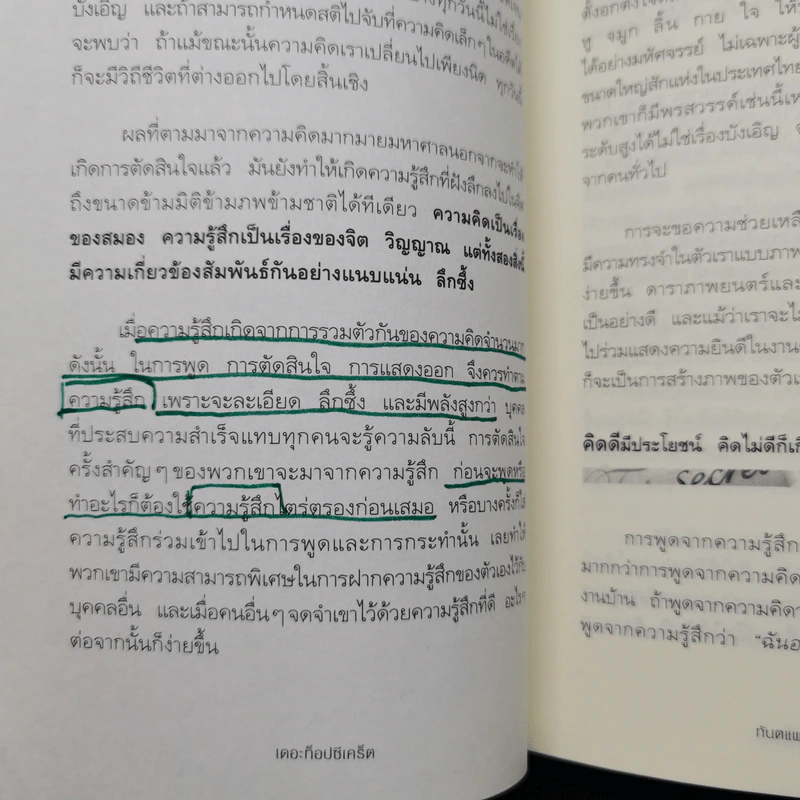 บังเอิญ และถ้าสามารถกำหนดสติไปจับที่ความคิดเล็กๆในอดีตได้
จะพบว่า ถ้าแม้ขณะนั้นความคิดเราเปลี่ยนไปเพียงนิด ทุกวันนี้
ก็จะมีวิถีชีวิตที่ต่างออกไปโดยสิ้นเชิง
ผลที่ตามมาจากความคิดมากมายมหาศาลนอกจากจะทำให้
เกิดการตัดสินใจแล้ว มันยังทำให้เกิดความรู้สึกที่ฝังลึกลงไปในจิต
ถึงขนาดข้ามมิติข้ามภพข้ามชาติได้ทีเดียว ความคิดเป็นเรื่อง
ของสมอง ความรู้สึกเป็นเรื่องของจิต วิญญาณ แต่ทั้งสองสิ่งนี้
มีความเกี่ยวข้องสัมพันธ์กันอย่างแนบแน่น ลึกซึ้ง
เมื่อความรู้สึกเกิดจากการรวมตัวกันของความคิดจำนวนมาก
ดังนั้น ในการพูด การตัดสินใจ การแสดงออก จึงควรทำตาม
ความรู้สึก เพราะจะละเอียด ลึกซึ้ง และมีพลังสูงกว่า บุคคล
ที่ประสบความสำเร็จแทบทุกคนจะรู้ความลับนี้ การตัดสินใจ
ครั้งสำคัญๆของพวกเขาจะมาจากความรู้สึก ก่อนจะพูดหรือ
ทำอะไรก็ต้องใช้ความรู้สึกไตร่ตรองก่อนเสมอ หรือบางครั้งก็ใส่
ความรู้สึกร่วมเข้าไปในการพูดและการกระทำนั้น เลยทำให้
พวกเขามีความสามารถพิเศษในการฝากความรู้สึกของตัวเองไว้กับ
บุคคลอื่น และเมื่อคนอื่นๆจดจำเขาไว้ด้วยความรู้สึกที่ดี อะไรๆ
ต่อจากนั้นก็ง่ายขึ้น
เดอะท็อปซีเคร็ต
หู จมูก ลิ้น กาย ใจ ให้
ได้อย่างมหัศจรรย์ ไม่เฉพาะผู้
ขนาดใหญ่สักแห่งในประเทศไทย
พวกเขาก็มีพรสวรรค์เช่นนี้เห
ระดับสูงได้ไม่ใช่เรื่องบังเอิญ
จากคนทั่วไป
การจะขอความช่วยเหลื
มีความทรงจำในตัวเราแบบภาพ
ง่ายขึ้น ดาราภาพยนตร์และ
เป็นอย่างดี และแม้ว่าเราจะไม่
ไปร่วมแสดงความยินดีในงาน
ก็จะเป็นการสร้างภาพของตัวเ
คิดดีมีประโยชน์ คิดไม่ดีก็เกิ
การพูดจากความรู้สึก
มากกว่าการพูดจากความคิด
งานบ้าน ถ้าพูดจากความคิดว
พูดจากความรู้สึกว่า "ฉันอ
ทันตแพ